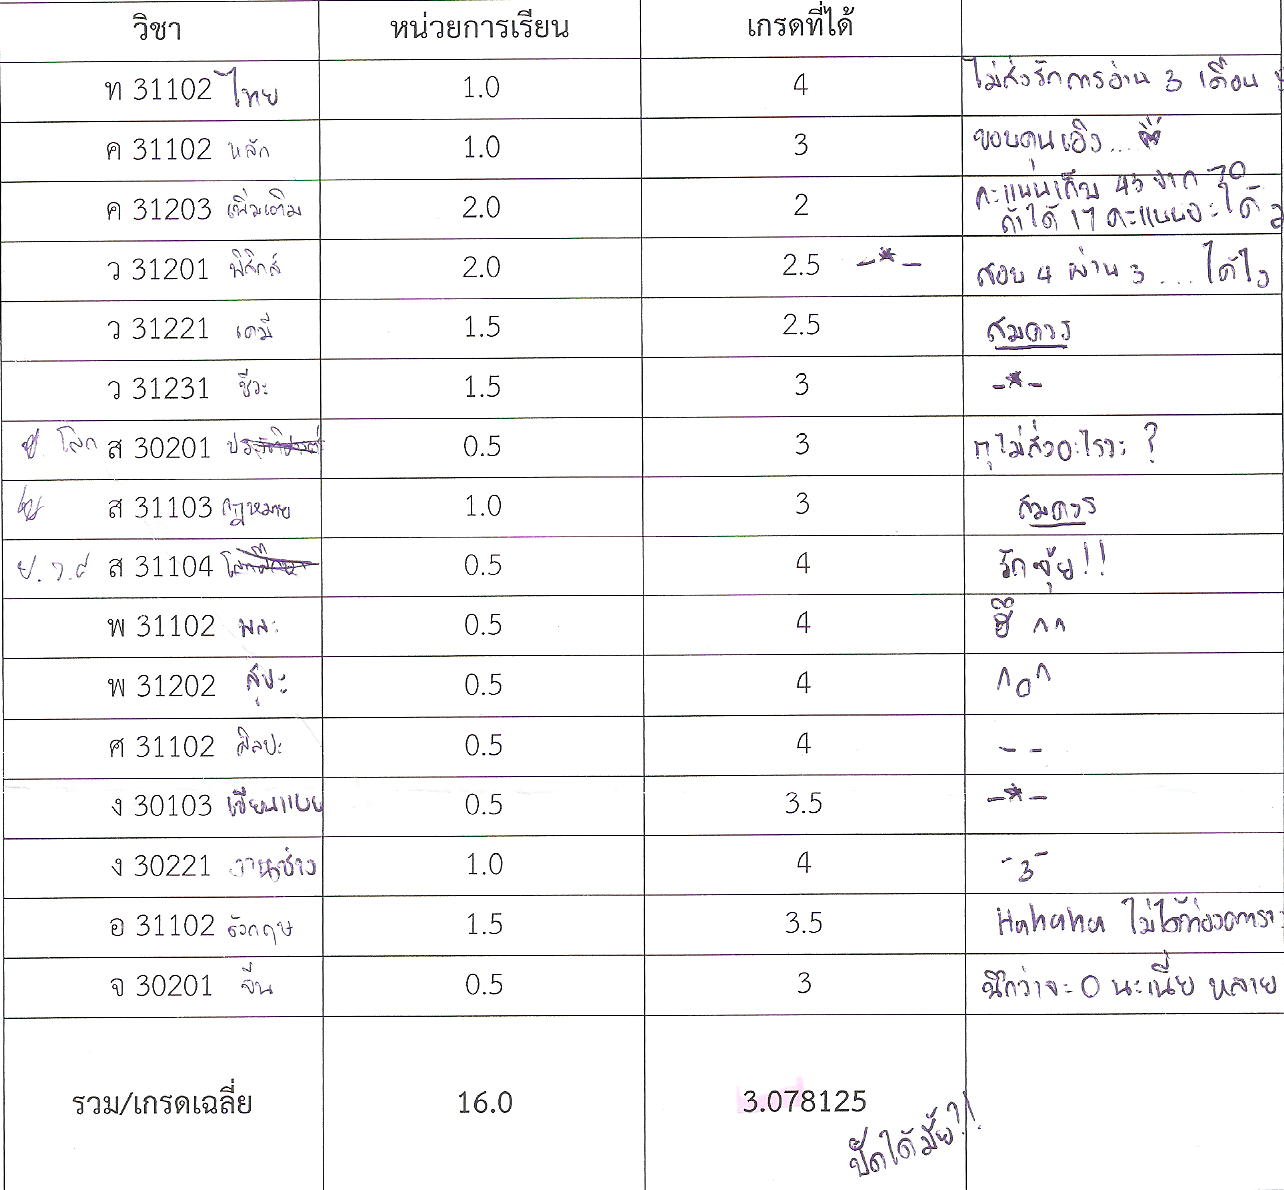 วิชา หน่วยการเรียน เกรดที่ได้
ท 31102 ไทย 1.0 4 ไม่ส่งรักการอ่าน 3 เดือน
ค 31102 หลัก 1.0 3 ขอบคุณเอิง...
ค 31203 เพิ่มเติม 2.0 2 คะแนนเก็บ 43 จาก 70
ถ้าได้ 17 คะแนนจะได้
ว 31201 ฟิสิกส์ 2.0 2.5 -*- สอบ 4 ผ่าน 3 ... ได้ไง
ว 31221 เคมี 1.5 2.5 สมควร
ว 31231 ชีวะ 1.5 3 -*-
โลก ส 30201 0.5 3 กุไม่ส่งอะไรวะ ?
ส 31103 กฎหมาย 1.0 3 สมควร
ป.ว.ศ ส 31104 0.5 4 รักจุ้ย!!
พ 31102 พละ 0.5 4 ^^
พ 31202 สุขะ 0.5 4 ^o^
ศ 31102 ศิลปะ 0.5 4 - -
ง 30103 เขียนแบบ 0.5 3.5 -*-
ง 30221 งานช่าง 1.0 4 -3-
อ 31102 อังกฤษ 1.5 3.5 Hahaha ไม่ได้ท่อง
จ 30201 จีน 0.5 3 นึกว่าจะ 0 นะเนี่ย หลาย
รวม/เกรดเฉลี่ย 16.0 3.078125
ปัดได้มั้ย?!!